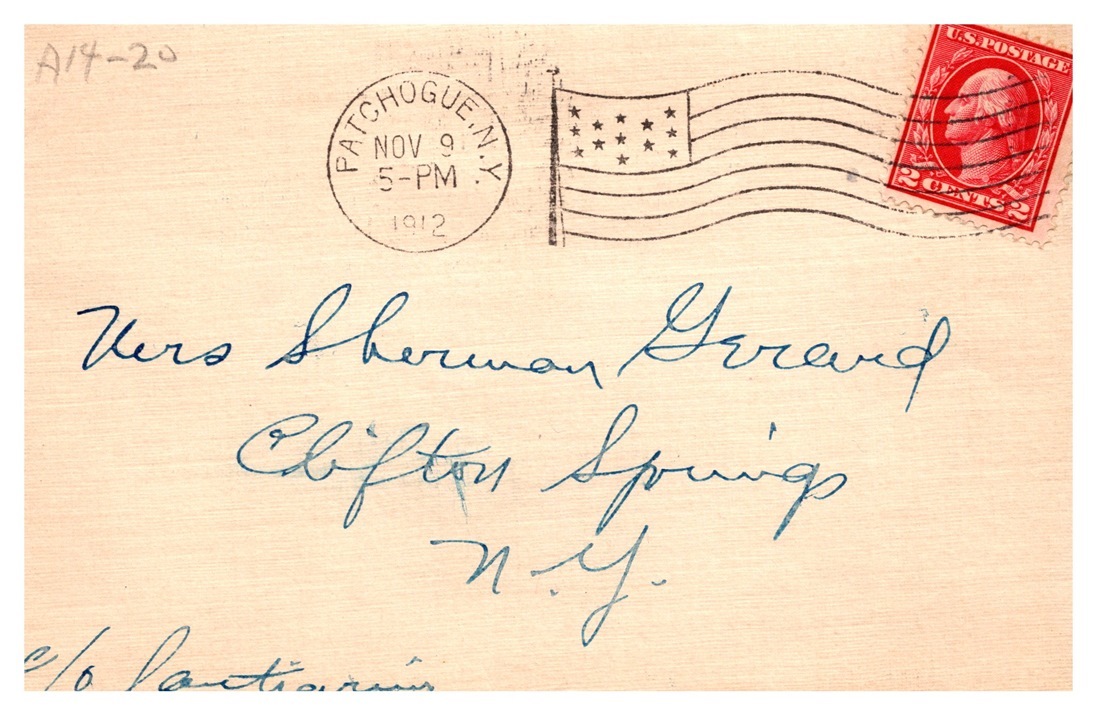 A14-20
PATCHOGUE, N.Y.
NOV 9
5-PM
1912
U.S. POSTAGE
2 CENTS 2
Mrs Sherman Gerard
Clifton Springs
N.Y.
c/o